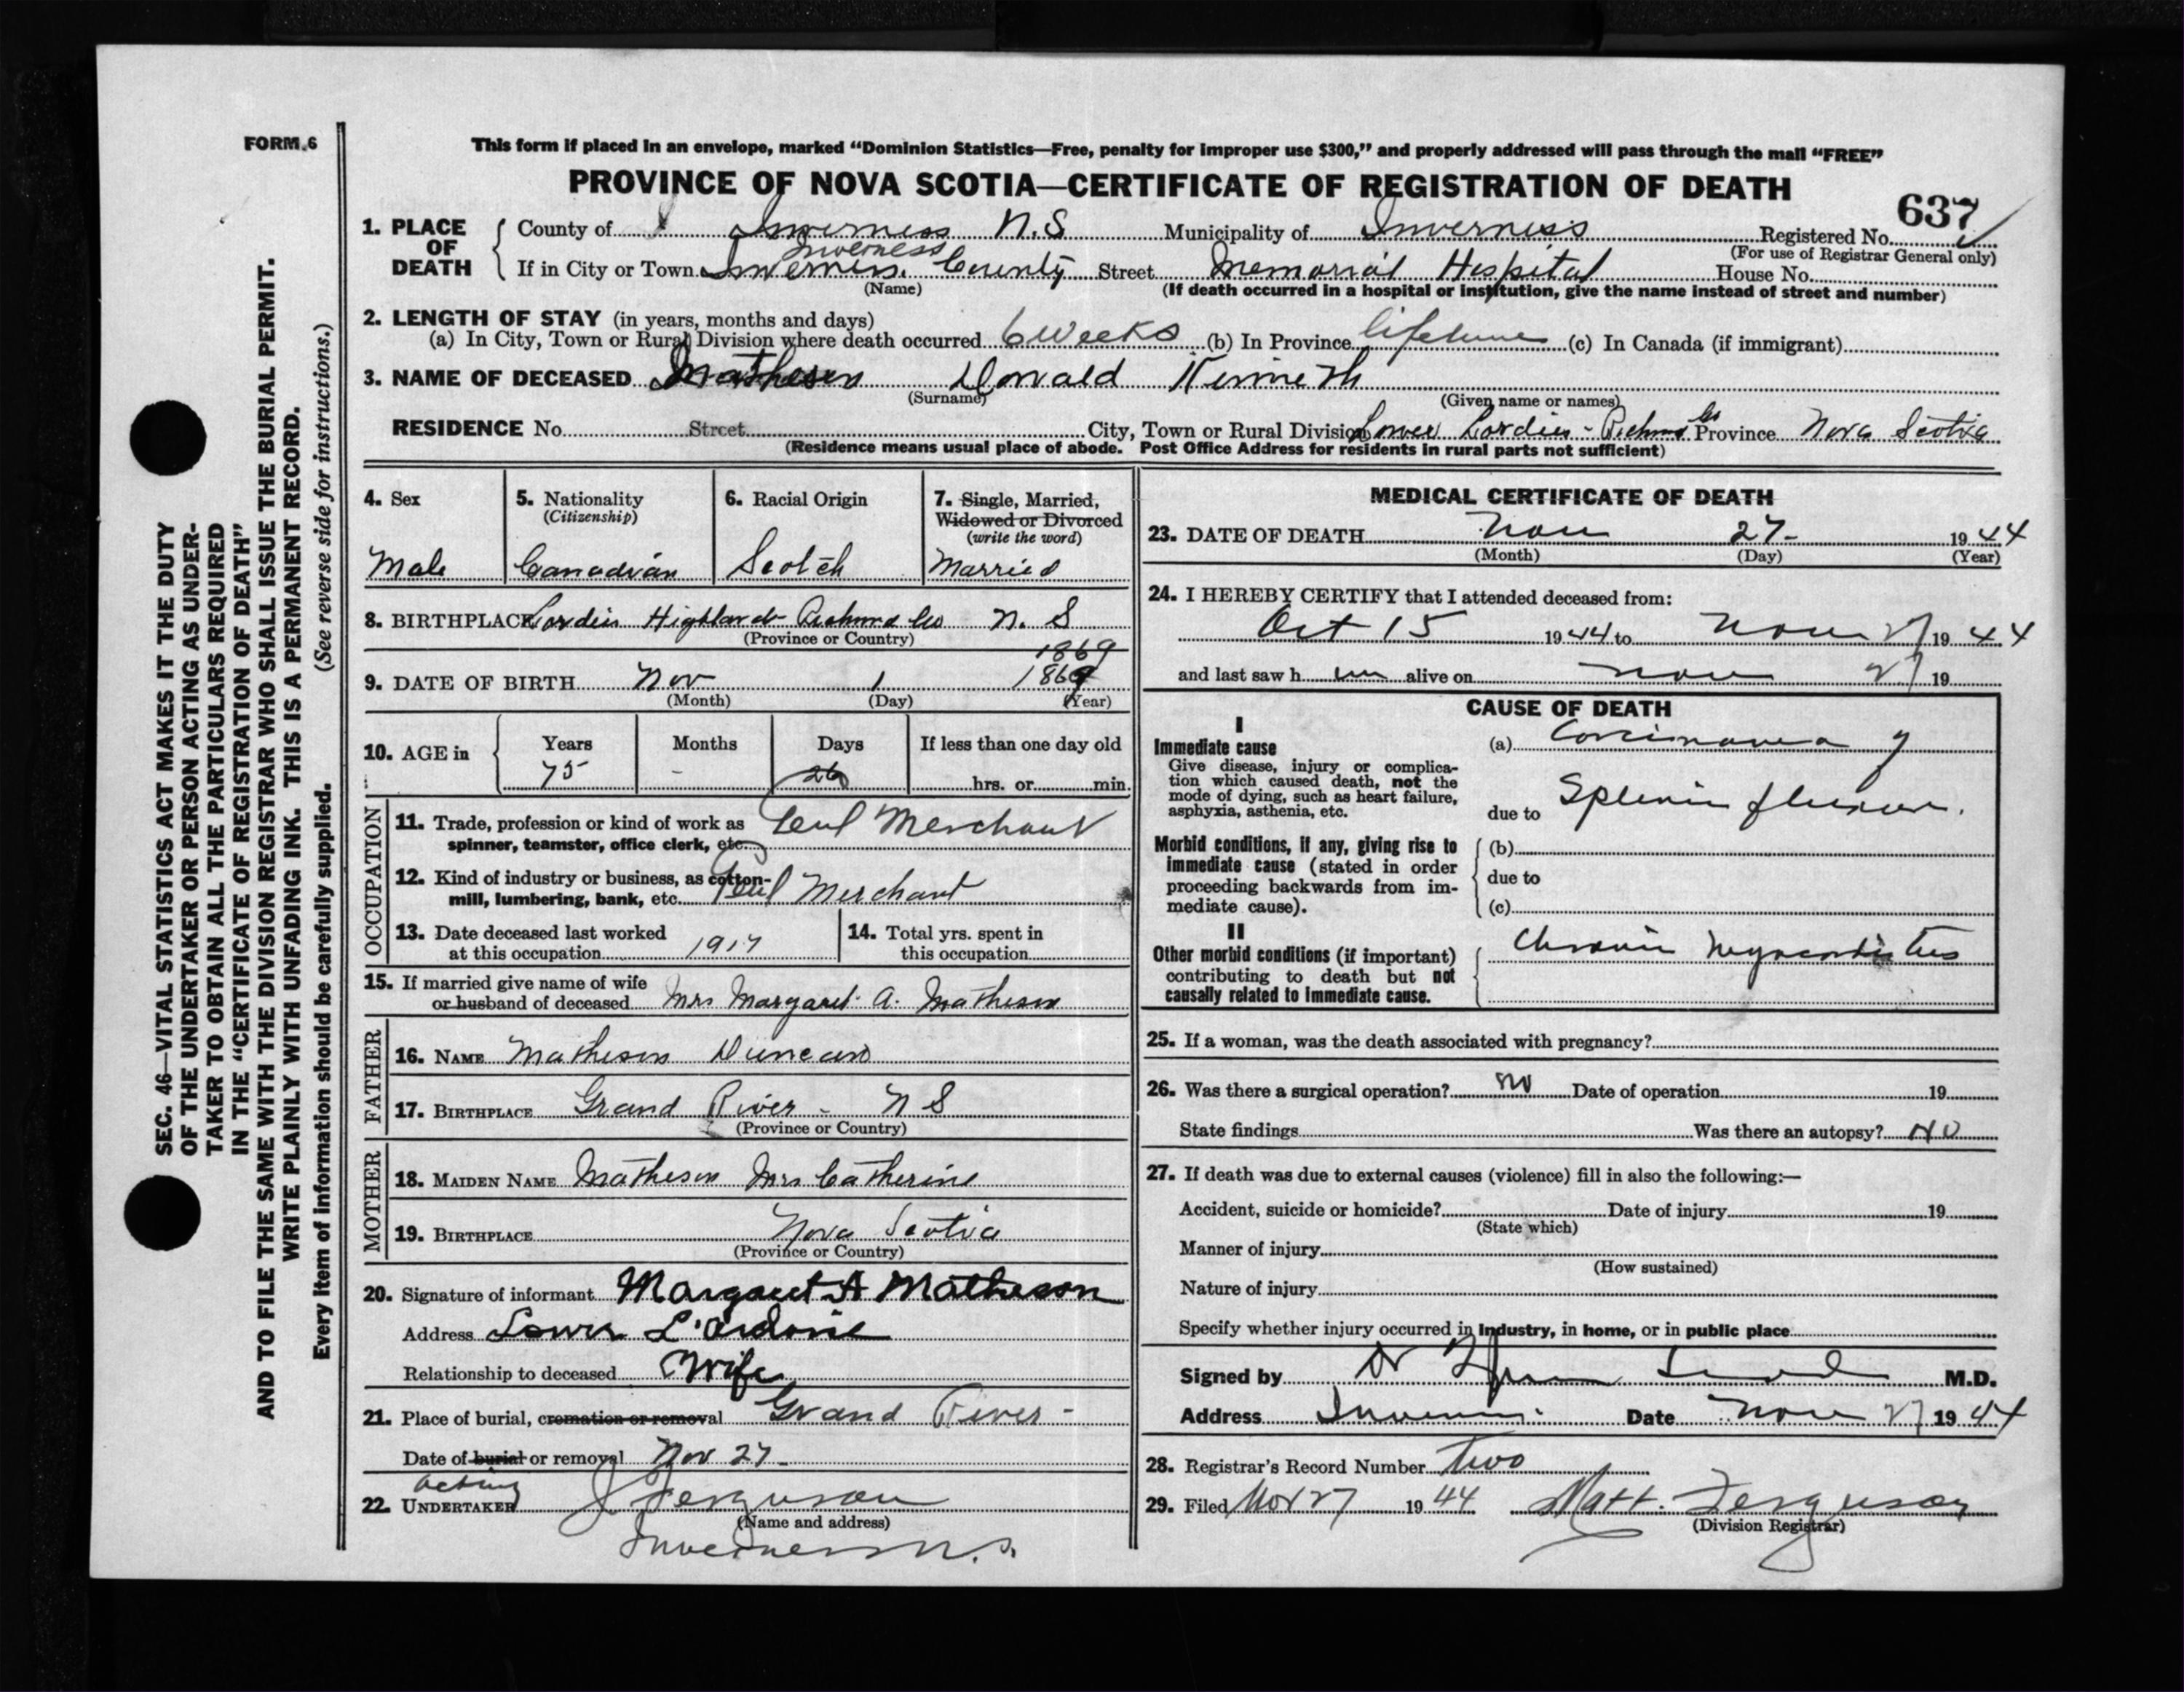 FORM 6
This form if placed in an envelope, marked “Dominion Statistics—Free, penalty for improper use $300,” and properly addressed will pass through the mail “FREE”
PROVINCE OF NOVA SCOTIA—CERTIFICATE OF REGISTRATION OF DEATH
637
1. PLACE OF DEATH
County of Inverness N.S Municipality of Inverness Registered No.
(For use of Registrar General only)
Inverness
If in City or Town Inverness County Street Memorial Hospital House No.
(Name) (If death occurred in a hospital or institution, give the name instead of street and number)
2. LENGTH OF STAY (in years, months and days)
(a) In City, Town or Rural Division where death occurred 6 weeks (b) In Province lifetime (c) In Canada (if immigrant)
3. NAME OF DECEASED Matheson Donald Kenneth
(Surname) (Given name or names)
RESIDENCE No. Street City, Town or Rural Division Lower Lordies - Richmd Co Province Nova Scotia
(Residence means usual place of abode. Post Office Address for residents in rural parts not sufficient)
4. Sex
Male
5. Nationality
(Citizenship)
Canadian
6. Racial Origin
Scotch
7. Single, Married,
Widowed or Divorced
(write the word)
Married
8. BIRTHPLACE Lordies Highlands Richmd Co N. S
(Province or Country)
1869
9. DATE OF BIRTH Nov 1 1869
(Month) (Day) (Year)
10. AGE in
Years Months Days If less than one day old
75 - 26 hrs. or min.
OCCUPATION
11. Trade, profession or kind of work as Genl Merchant
spinner, teamster, office clerk, etc.
12. Kind of industry or business, as cotton-
mill, lumbering, bank, etc. Genl Merchant
13. Date deceased last worked
at this occupation 1917
14. Total yrs. spent in
this occupation
15. If married give name of wife
or husband of deceased Mrs Margaret A. Matheson
FATHER
16. NAME Matheson Duncan
17. BIRTHPLACE Grand River - N S
(Province or Country)
MOTHER
18. MAIDEN NAME Matheson Mrs Catherine
19. BIRTHPLACE Nova Scotia
(Province or Country)
20. Signature of informant Margaret A Matheson
Address Lower L'Ardoise
Relationship to deceased Wife
21. Place of burial, cremation or removal Grand River -
Date of burial or removal Nov 27 -
acting
22. UNDERTAKER J Ferguson
(Name and address)
Inverness N. S.
MEDICAL CERTIFICATE OF DEATH
23. DATE OF DEATH Nov 27- 1944
(Month) (Day) (Year)
24. I HEREBY CERTIFY that I attended deceased from:
Oct 15 1944 to Nov 27 1944
and last saw h im alive on Nov 27 19
CAUSE OF DEATH
I
Immediate cause
Give disease, injury or complica-
tion which caused death, not the
mode of dying, such as heart failure,
asphyxia, asthenia, etc.
(a) Carcinoma of
due to Splenic flexure.
Morbid conditions, if any, giving rise to
immediate cause (stated in order
proceeding backwards from im-
mediate cause).
(b)
due to
(c)
II
Other morbid conditions (if important)
contributing to death but not
causally related to immediate cause.
Chronic Myocarditis
25. If a woman, was the death associated with pregnancy?
26. Was there a surgical operation? no Date of operation 19
State findings Was there an autopsy? NO
27. If death was due to external causes (violence) fill in also the following:—
Accident, suicide or homicide? Date of injury 19
(State which)
Manner of injury
(How sustained)
Nature of injury
Specify whether injury occurred in industry, in home, or in public place
Signed by Dr M.D.
Address Inverness Date Nov 27 1944
28. Registrar's Record Number two
29. Filed Nov 27 1944 Matt. Ferguson
(Division Registrar)
SEC. 46—VITAL STATISTICS ACT MAKES IT THE DUTY
OF THE UNDERTAKER OR PERSON ACTING AS UNDER-
TAKER TO OBTAIN ALL THE PARTICULARS REQUIRED
IN THE “CERTIFICATE OF REGISTRATION OF DEATH”
AND TO FILE THE SAME WITH THE DIVISION REGISTRAR WHO SHALL ISSUE THE BURIAL PERMIT.
WRITE PLAINLY WITH UNFADING INK. THIS IS A PERMANENT RECORD.
Every item of information should be carefully supplied. (See reverse side for instructions.)